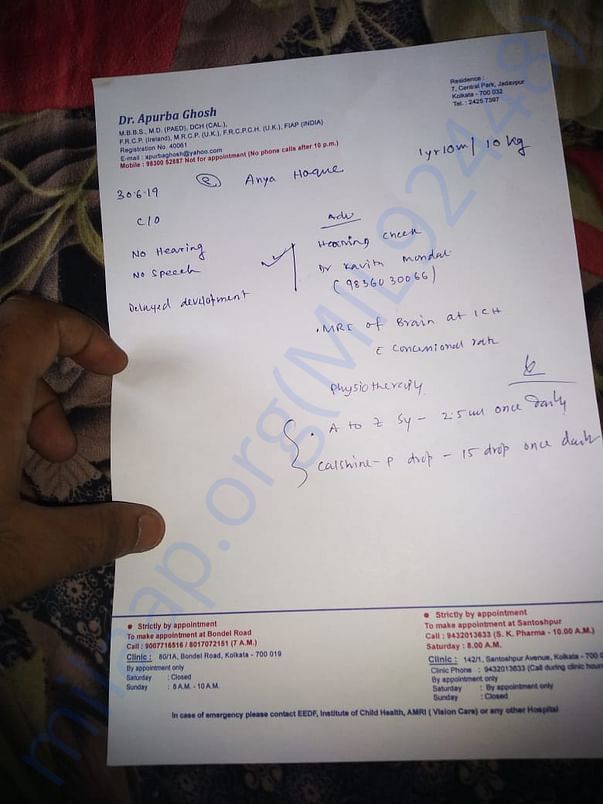 Dr. Apurba Ghosh
M.B.B.S., M.D. (PAED), DCH (CAL.),
F.R.C.P. (Ireland), M.R.C.P. (U.K.), F.R.C.P.C.H. (U.K.), FIAP (INDIA)
Registration No. 40061
E-mail : apurbaghosh@yahoo.com
Mobile : 98300 52687 Not for appointment (No phone calls after 10 p.m.)
Residence :
7, Central Park, Jadavpur
Kolkata - 700 032
Tel. : 2425 7397
30.6.19
Anya Hoque
1yr10m / 10 kg
C/O
No Hearing
No Speech
Delayed development
Adv
Hearing check
Dr Kavita Mondal
(9836030066)
. MRI of Brain at ICH
c Concessional rate
Physiotherapy
. A to Z Sy - 2.5ml once daily
Calshine-P drop - 15 drop once daily
milaap.org(MIL92448)
● Strictly by appointment
To make appointment at Bondel Road
Call : 9007716516 / 8017072151 (7 A.M.)
Clinic : 80/1A, Bondel Road, Kolkata - 700 019
By appointment only
Saturday : Closed
Sunday : 8 A.M. - 10 A.M.
● Strictly by appointment
To make appointment at Santoshpur
Call : 9432013633 (S. K. Pharma - 10.00 A.M.)
Saturday : 8.00 A.M.
Clinic : 142/1, Santoshpur Avenue, Kolkata - 700 0
Clinic Phone : 9432013633 (Call during clinic hour
By appointment only
Saturday : By appointment only
Sunday : Closed
In case of emergency please contact EEDF, Institute of Child Health, AMRI ( Vision Care) or any other Hospital